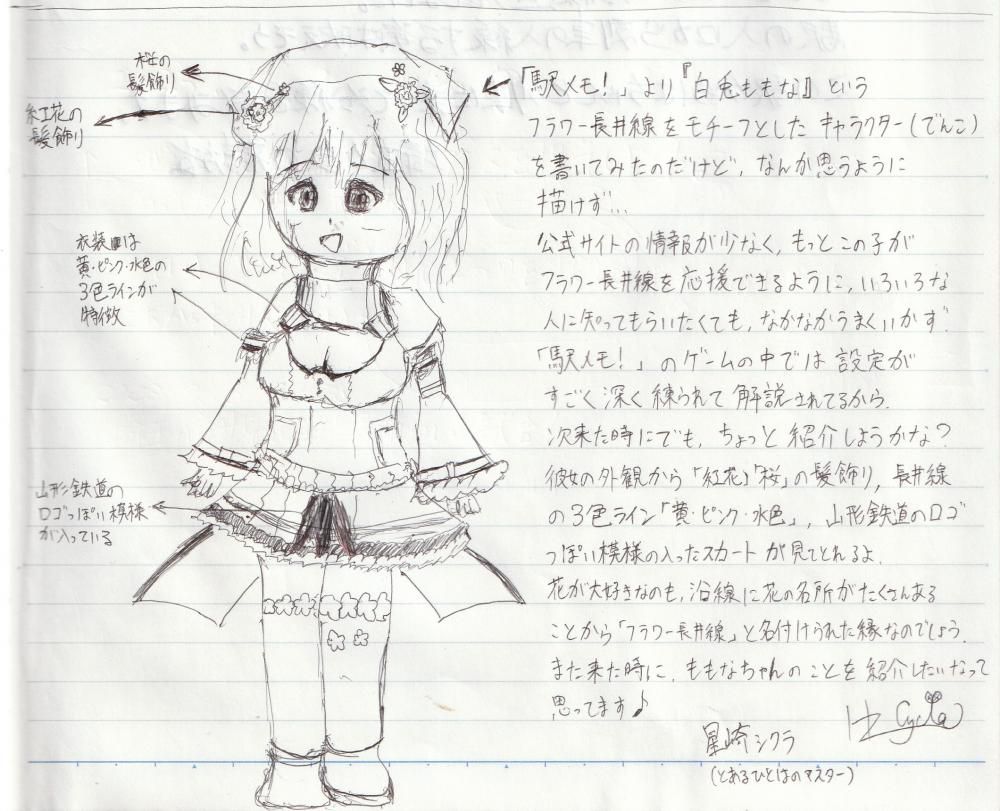 桜の
髪飾り
紅花の
髪飾り
衣装は
黄・ピンク・水色の
3色ラインが
特徴
山形鉄道の
ロゴっぽい模様
が入っている
「駅メモ!」より『白兎ももな』という
フラワー長井線をモチーフとしたキャラクター(でんこ)
を書いてみたのだけど、なんか思うように
描けず…
公式サイトの情報が少なく、もっとこの子が
フラワー長井線を応援できるように、いろいろな
人に知ってもらいたくても、なかなかうまくいかず.
「駅メモ!」のゲームの中では設定が
すごく深く練られて解説されてるから.
次来た時にでも、ちょっと紹介しようかな?
彼女の外観から「紅花」「桜」の髪飾り、長井線
の3色ライン「黄・ピンク・水色」、山形鉄道のロゴ
っぽい模様の入ったスカートが見てとれるよ.
花が大好きなのも、沿線に花の名所がたくさんある
ことから「フラワー長井線」と名付けられた縁なのでしょう.
また来た時に、ももなちゃんのことを紹介したいなって
思ってます♪
星崎シクラ
(とあるひとはのマスター)
Cycla